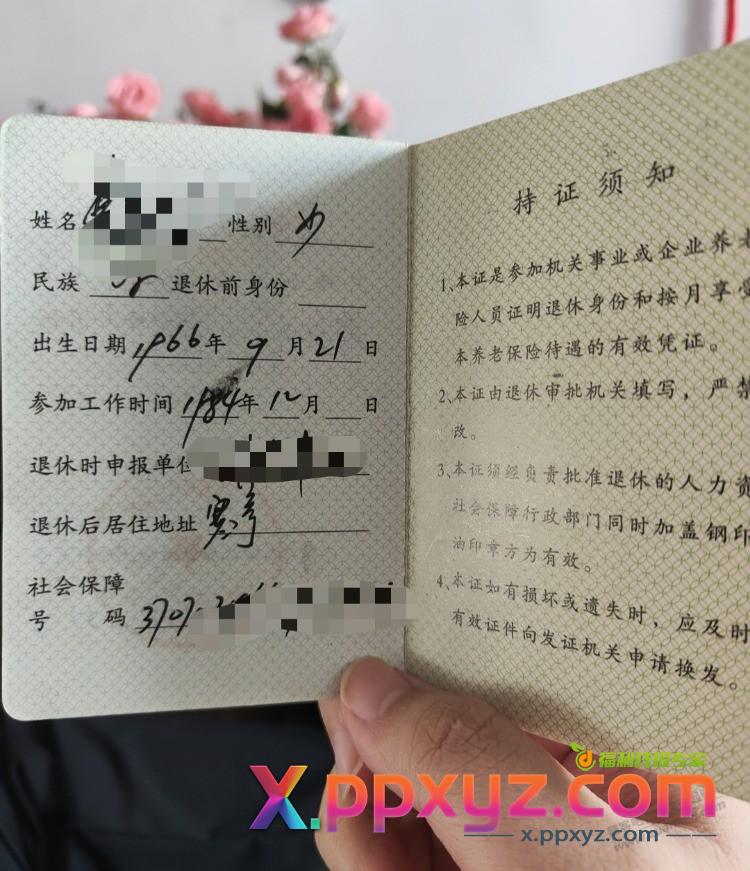 姓名 性别 女
民族 退休前身份
出生日期 1966年 9月 21日
参加工作时间 1984年 12月 日
退休时申报单位
退休后居住地址 寒亭
社会保障
号 码 3707
持证须知
1、本证是参加机关事业或企业养老
险人员证明退休身份和按月享受
本养老保险待遇的有效凭证。
2、本证由退休审批机关填写，严禁
改。
3、本证须经负责批准退休的人力资
社会保障行政部门同时加盖钢印
油印章方为有效。
4、本证如有损坏或遗失时，应及时
有效证件向发证机关申请换发。
福利线报专家
X.ppxyz.com
x.ppxyz.com